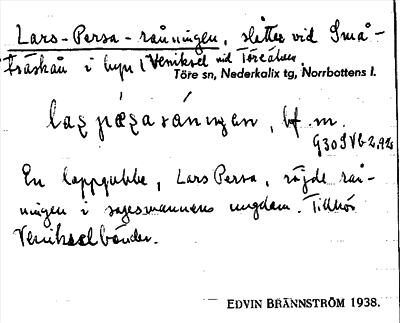 Lars-Persa-råningen, slåtter vid Små-
träskån i byn Veniksel vid Töreälven.
Töre sn, Nederkalix tg, Norrbottens l.
laṣ pæṣa råningen, bf. m.
En lappgubbe, Lars Persa, röjde rå-
ningen i sagesmannens ungdom. Tillhör
Venikselbönder.
EDVIN BRÄNNSTRÖM 1938.